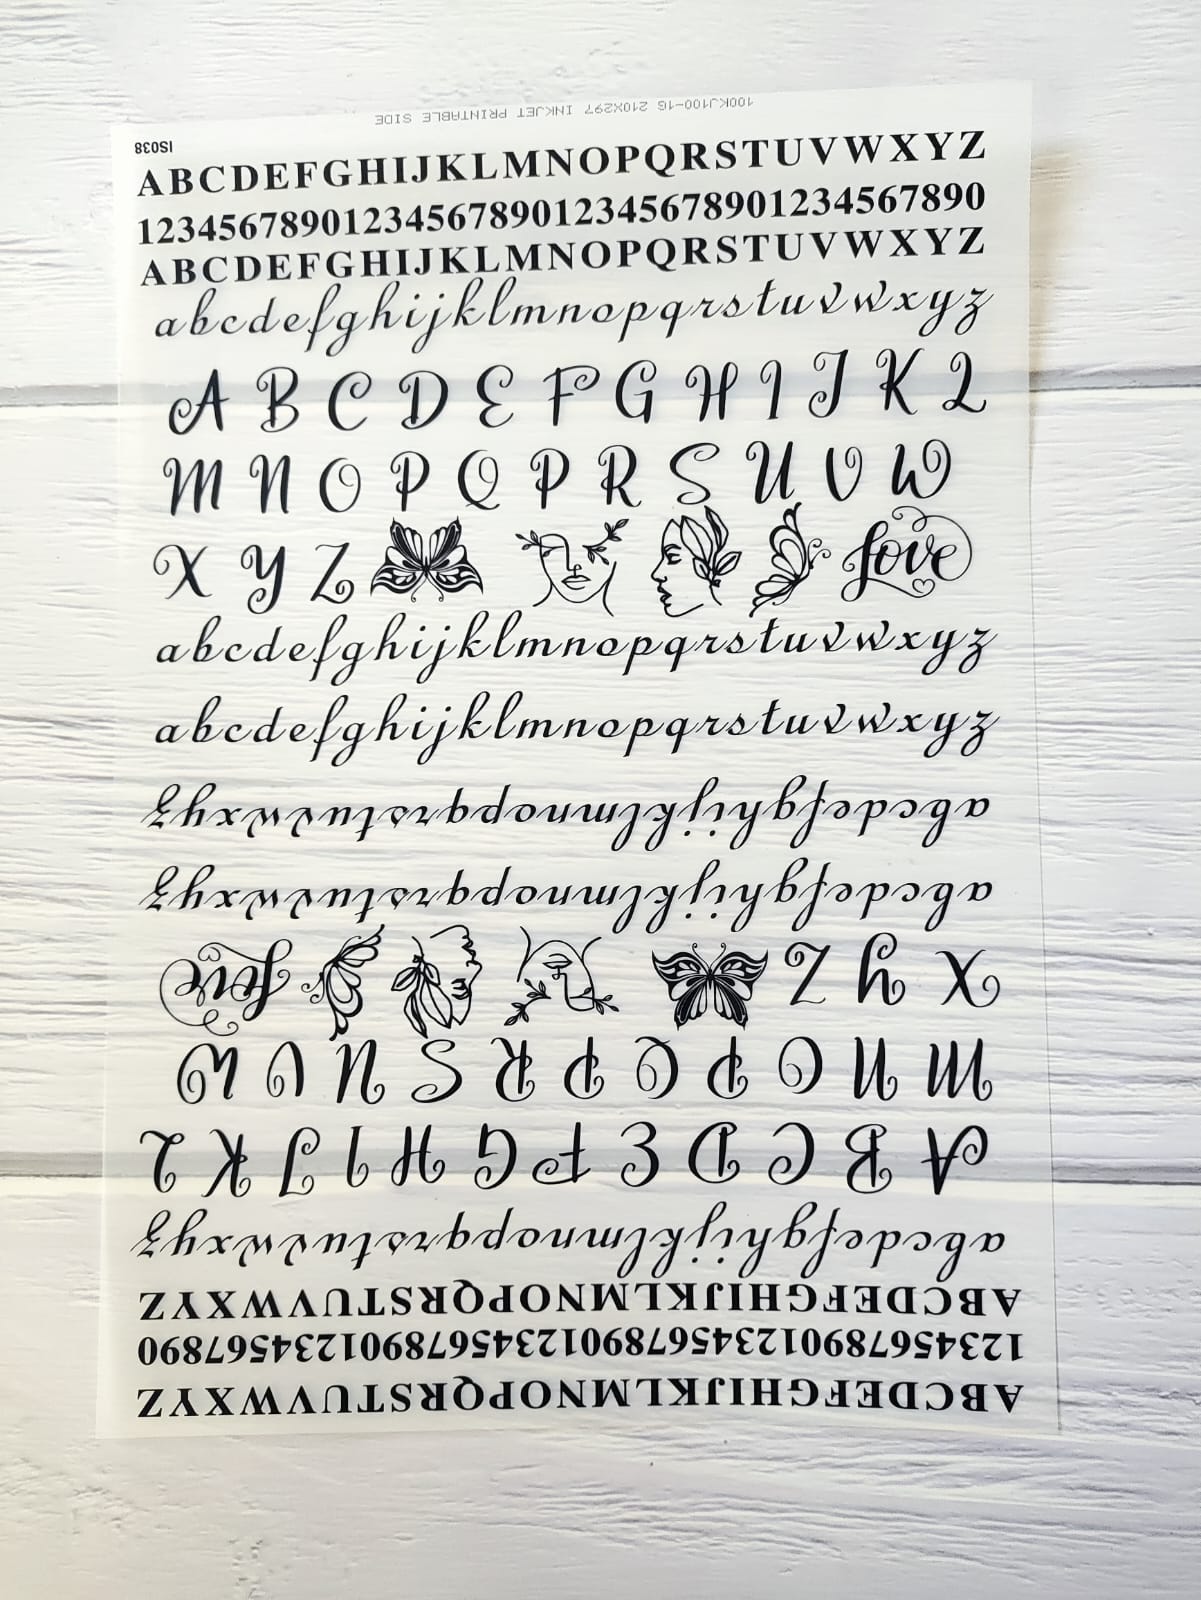 100KJ100-1G 210X297 INKJET PRINTABLE SIDE
IS038
ABCDEFGHIJKLMNOPQRSTUVWXYZ
1234567890123456789012345678901234567890
ABCDEFGHIJKLMNOPQRSTUVWXYZ
abcdefghijklmnopqrstuvwxyz
A B C D E F G H I J K L
M N O P Q P R S U V W
X Y Z Love
abcdefghijklmnopqrstuvwxyz
abcdefghijklmnopqrstuvwxyz
abcdefghijklmnopqrstuvwxyz
abcdefghijklmnopqrstuvwxyz
X Y Z Love
M N O P Q P R S U V W
A B C D E F G H I J K L
abcdefghijklmnopqrstuvwxyz
ABCDEFGHIJKLMNOPQRSTUVWXYZ
1234567890123456789012345678901234567890
ABCDEFGHIJKLMNOPQRSTUVWXYZ